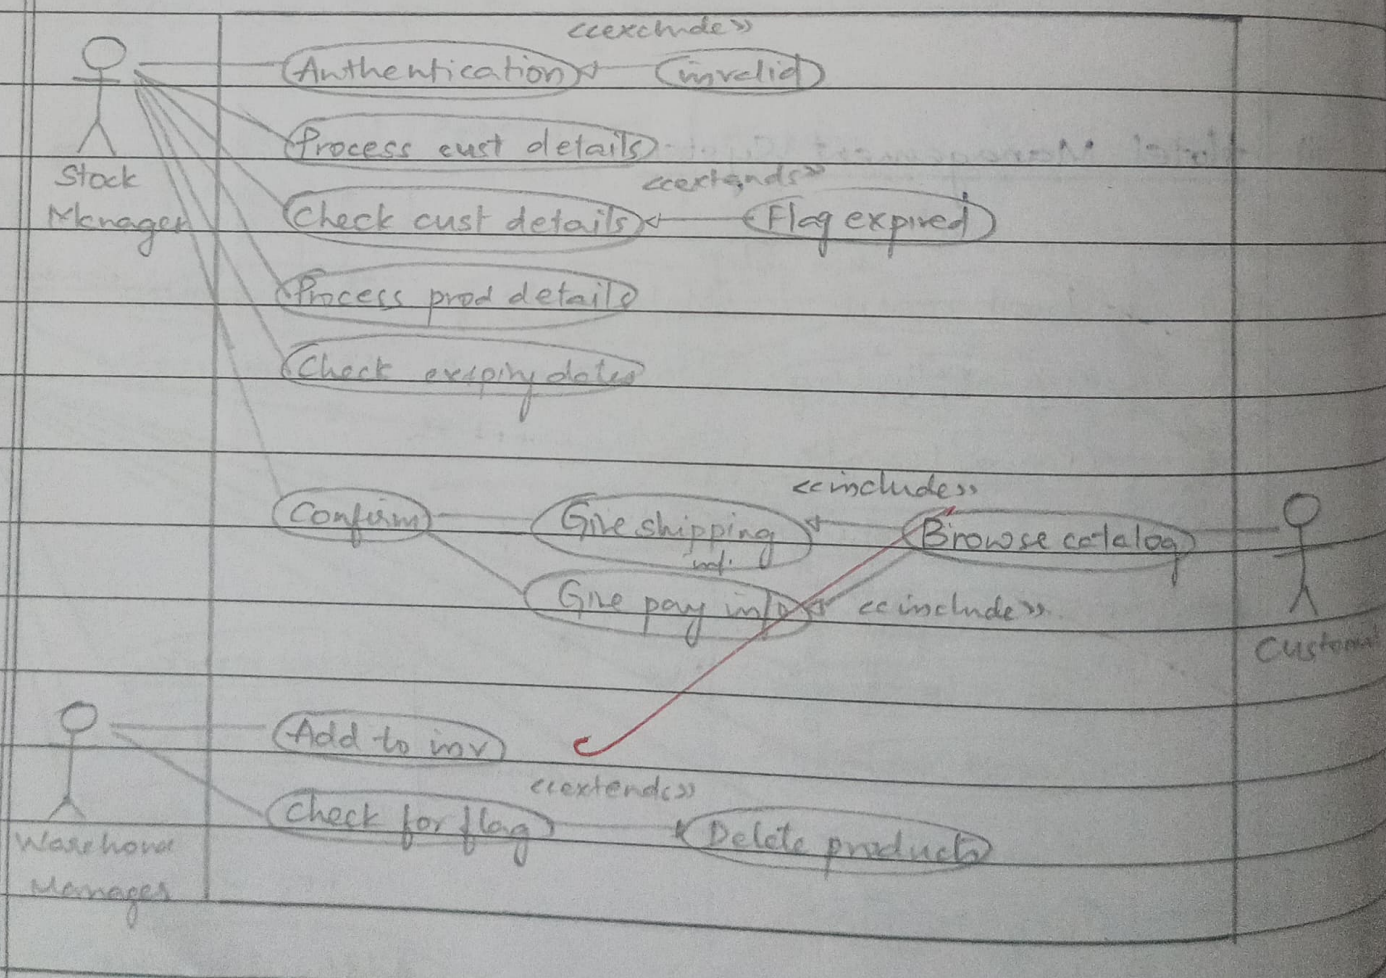 <<exclude>>
Authentication
invalid
Process cust details
Stock
Manager
<<extends>>
Check cust details
Flag expired
Process prod details
Check expiry dates
<<include>>
Confirm
Give shipping
inf.
Browse catalog
Give pay info
<<include>>
Add to inv
<<extends>>
Check for flag
Delete products
Manager